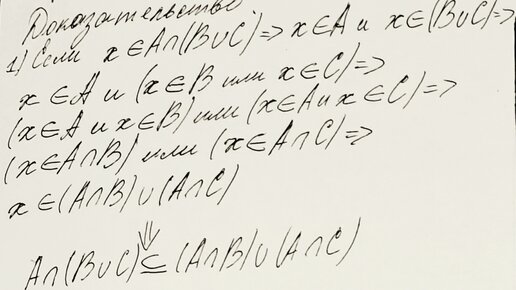 Доказательство
1) Если x∈A∩(B∪C)=> x∈A и x∈(B∪C)=>
x∈A и (x∈B или x∈C)=>
(x∈A и x∈B) или (x∈A и x∈C)=>
(x∈A∩B) или (x∈A∩C)=>
x∈(A∩B)∪(A∩C)
⇓
A∩(B∪C)⊆(A∩B)∪(A∩C)